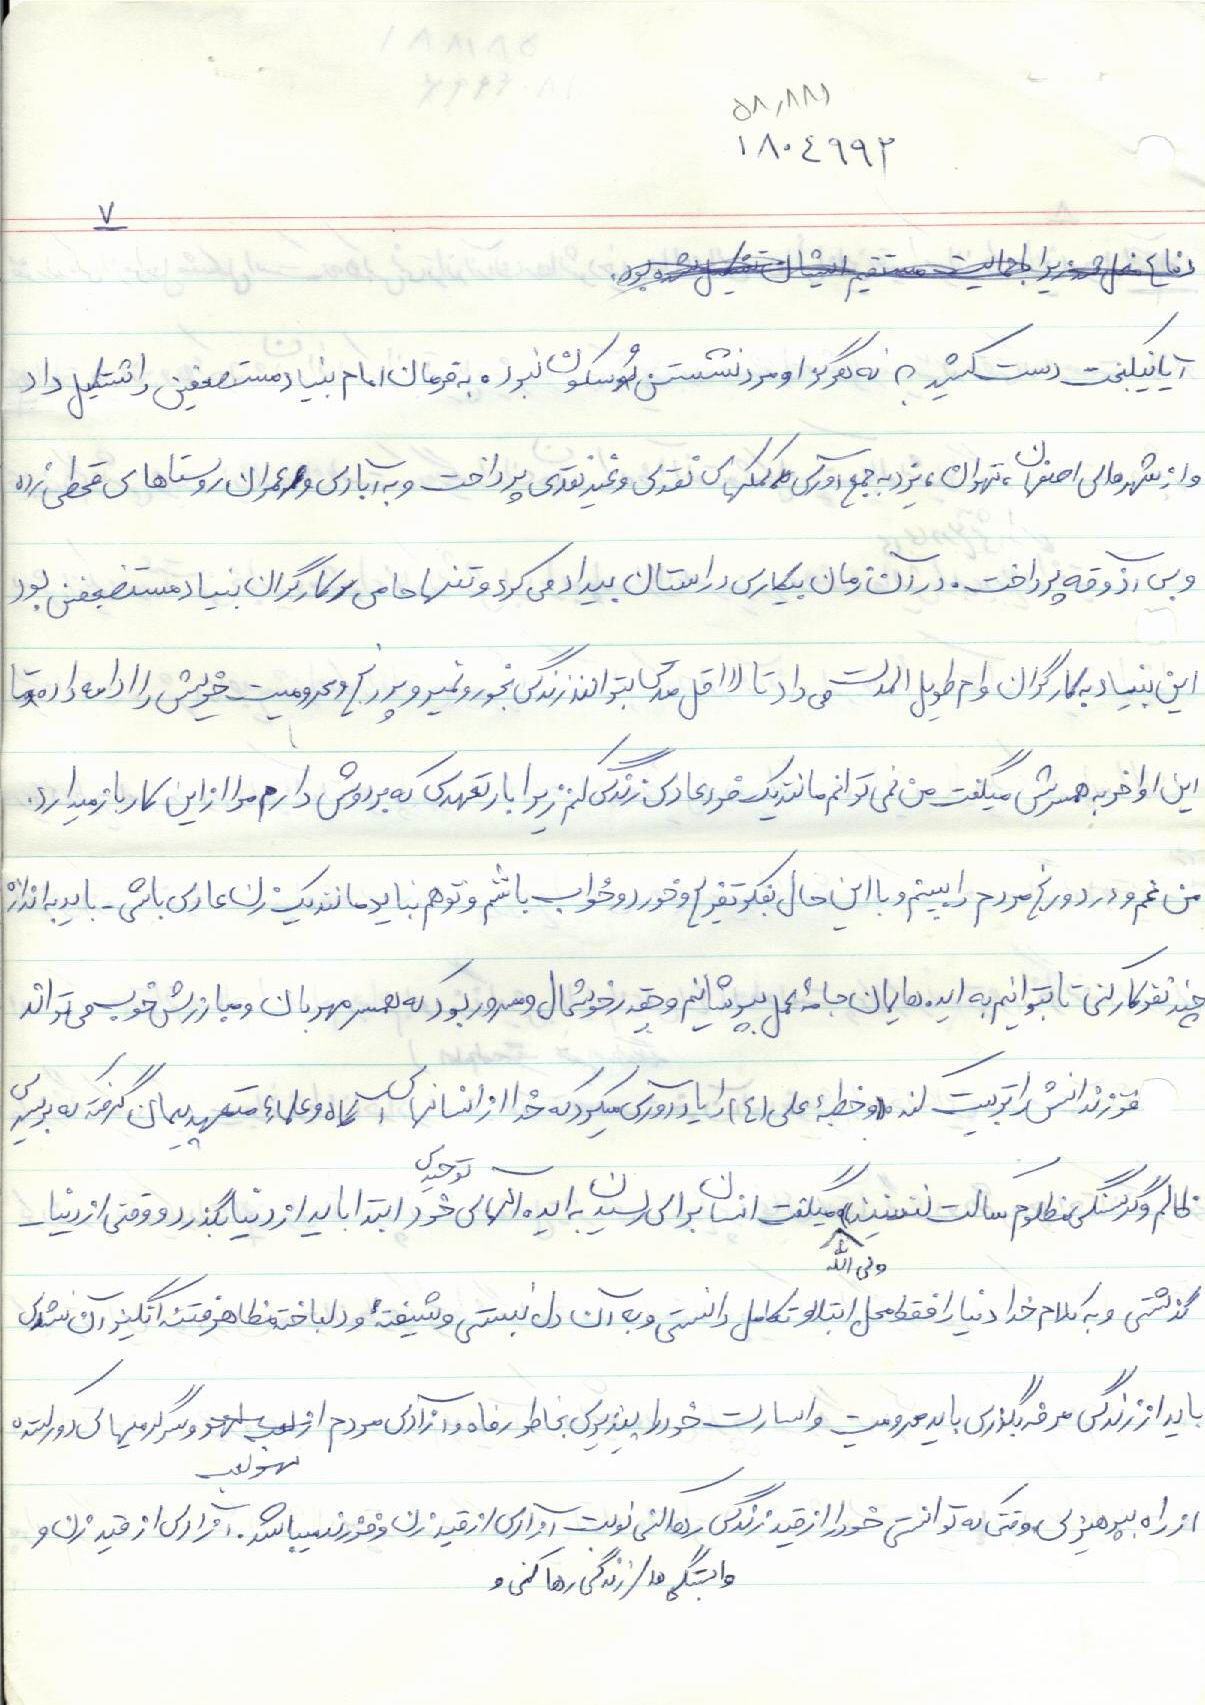 ۵۸,۸۸۱
۱۸۰۴۹۹۲
۷
دفاع زیرا با حمایت مستقیم ایشان تشکیل شده بود.
آیا نیکبخت دست کشید؟ نه هرگز او مرد نشستن و سکون نبود به فرمان امام بنیاد مستضعفین را تشکیل داد
و از شهرهای اصفهان، تهران، یزد به جمع آوری کمکهای نقدی و غیر نقدی پرداخت و به آبادی و عمران روستاهای قحطی زده
و بی آذوقه پرداخت. در آن زمان بیکاری در استان بیداد می کرد و تنها حامی کارگران بنیاد مستضعفین بود
این بنیاد به کارگران وام طویل المدت می داد تا لااقل مدتی بتوانند زندگی بخور و نمیر و پر رنج و محرومیت خویش را ادامه داده تا
این اواخر به همسرش میگفت من نمی توانم مانند یک فرد عادی زندگی کنم زیرا بار تعهدی که بر دوش دارم مرا از این کار باز میدارد.
من غم و درد و رنج مردم را ببینم و با این حال بفکر تفریح و خورد و خواب باشم و تو هم نباید مانند یک زن عادی باشی - باید به اندازه
چند نفر کار کنی تا بتوانیم به ایده هایمان جامهٔ عمل بپوشانیم و چقدر خوشحال و مسرور بود که همسر مهربان و مبارزش خوب می تواند
فرزندانش را تربیت کند. و خطبهٔ علی (ع) را یادآوری میکرد که خدا از انسانهای آگاه و علماء متعهد پیمان گرفته که بر سیری
ظالم و گرسنگی مظلوم ساکت ننشینند میگفت انسان برای رسیدن به ایده آلهای توحیدی خود ابتدا باید از دنیا بگذرد و وقتی از دنیا
ولی الله
گذشتی و به کلام خدا دنیا را فقط محل ابتلا و تکامل دانستی و به آن دل نبستی و شیفتهٔ و دلباخته مظاهر فتنه انگیز آن نشدی
باید از زندگی مرفه بگذری باید محرومیت و اسارت خود را بپذیری بخاطر رفاه و آزادی مردم از لعب لهو و سرگرمیهای دور کننده
لهو لعب
از راه بپرهیزی وقتی که توانستی خود را از قید زندگی رها کنی نوبت آزادی از قید زن و فرزند میباشد. آزادی از قید زن و
وابستگی ها / زندگی رها کنی و